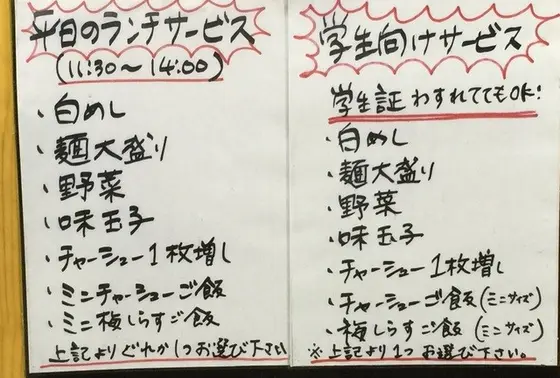 平日のランチサービス
(11:30〜14:00)
・白めし
・麺大盛り
・野菜
・味玉子
・チャーシュー1枚増し
・ミニチャーシューご飯
・ミニ梅しらすご飯
上記よりどれか1つお選び下さい
学生向けサービス
学生証わすれててもOK!
・白めし
・麺大盛り
・野菜
・味玉子
・チャーシュー1枚増し
・チャーシューご飯(ミニサイズ)
・梅しらすご飯(ミニサイズ)
※上記より1つお選び下さい。